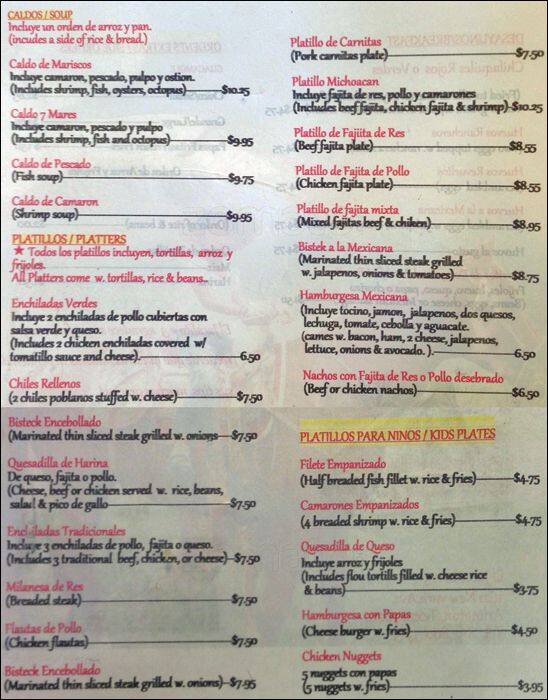 CALDOS / SOUP
Incluye un orden de arroz y pan.
(incudes a side of rice & bread.)
Caldo de Mariscos
Incluye camaron, pescado, pulpo y ostion.
(Includes shrimp, fish, oysters, octopus)—$10.25
Caldo 7 Mares
Incluye camaron, pescado y pulpo
(Includes shrimp, fish and octopus)—$9.95
Caldo de Pescado
(Fish soup)—$9.75
Caldo de Camaron
(Shrimp soup)—$9.95
PLATILLOS / PLATTERS
★ Todos los platillos incluyen, tortillas, arroz y
frijoles.
All Platters come w. tortillas, rice & beans..
Enchiladas Verdes
Incluye 2 enchiladas de pollo cubiertas con
salsa verde y queso.
(Includes 2 chicken enchiladas covered w/
tomatillo sauce and cheese).—6.50
Chiles Rellenos
(2 chiles poblanos stuffed w. cheese)—$7.50
Bisteck Encebollado
(Marinated thin sliced steak grilled w. onions—$7.50
Quesadilla de Harina
De queso, fajita o pollo.
(Cheese, beef or chicken served w. rice, beans,
salad & pico de gallo—$7.50
Enchiladas Tradicionales
Incluye 3 enchiladas de pollo, fajita o queso.
(Includes 3 traditional beef, chicken, or cheese)—$7.50
Milanesa de Res
(Breaded steak)—$7.50
Flautas de Pollo
(Chicken flautas)—$7.50
Bisteck Encebollado
(Marinated thin sliced steak grilled w. onions)—$7.95
Platillo de Carnitas
(Pork carnitas plate)—$7.50
Platillo Michoacan
Incluye fajita de res, pollo y camarones
(Includes beef fajita, chicken fajita & shrimp)—$10.25
Platillo de Fajiita de Res
(Beef fajita plate)—$8.55
Platillo de Fajita de Pollo
(Chicken fajita plate)—$8.55
Platillo de fajita mixta
(Mixed fajitas beef & chiken)—$8.95
Bistek a la Mexicana
(Marinated thin sliced steak grilled
w. jalapenos, onions & tomatoes)—$8.75
Hamburgesa Mexicana
(Incluye tocino, jamon, jalapenos, dos quesos,
lechuga, tomate, cebolla y aguacate.
(cames w. bacon, ham, 2 cheese, jalapenos,
lettuce, onions & avocado. ).—6.50
Nachos con Fajita de Res o Pollo desebrado
(Beef or chicken nachos)—$6.50
PLATILLOS PARA NINOS / KIDS PLATES
Filete Empanizado
(Half breaded fish fillet w. rice & fries)—$4.75
Camarones Empanizados
(4 breaded shrimp w. rice & fries)—$4.75
Quesadilla de Queso
Incluye arroz y frijoles
(Includes flou tortills filled w. cheese rice
& beans)—$3.75
Hamburgesa con Papas
(Cheese burger w. fries)—$4.50
Chicken Nuggets
5 nuggets con papas
(5 nuggets w. fries)—$3.95